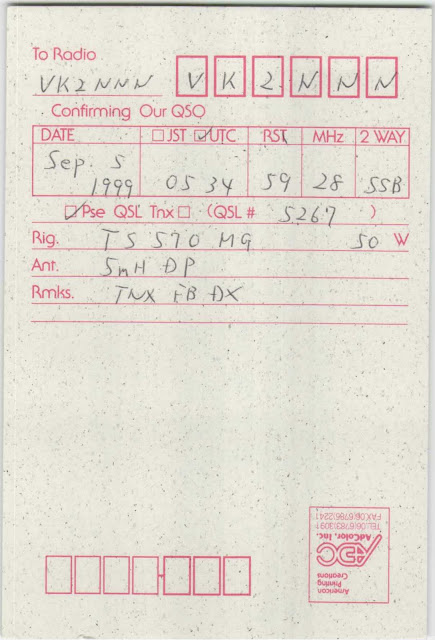 To Radio
VK2NNN VK2NNN
Confirming Our QSO
DATE JST UTC RST MHz 2 WAY
Sep. 5
1999 05 34 59 28 SSB
Pse QSL Tnx (QSL # 5267 )
Rig. TS 570 MG 50 W
Ant. 5mH DP
Rmks. TNX FB DX
American
Printing
Creations
ADC
AdColor, Inc.
TEL:06(6783)3091
FAX:06(6785)2241